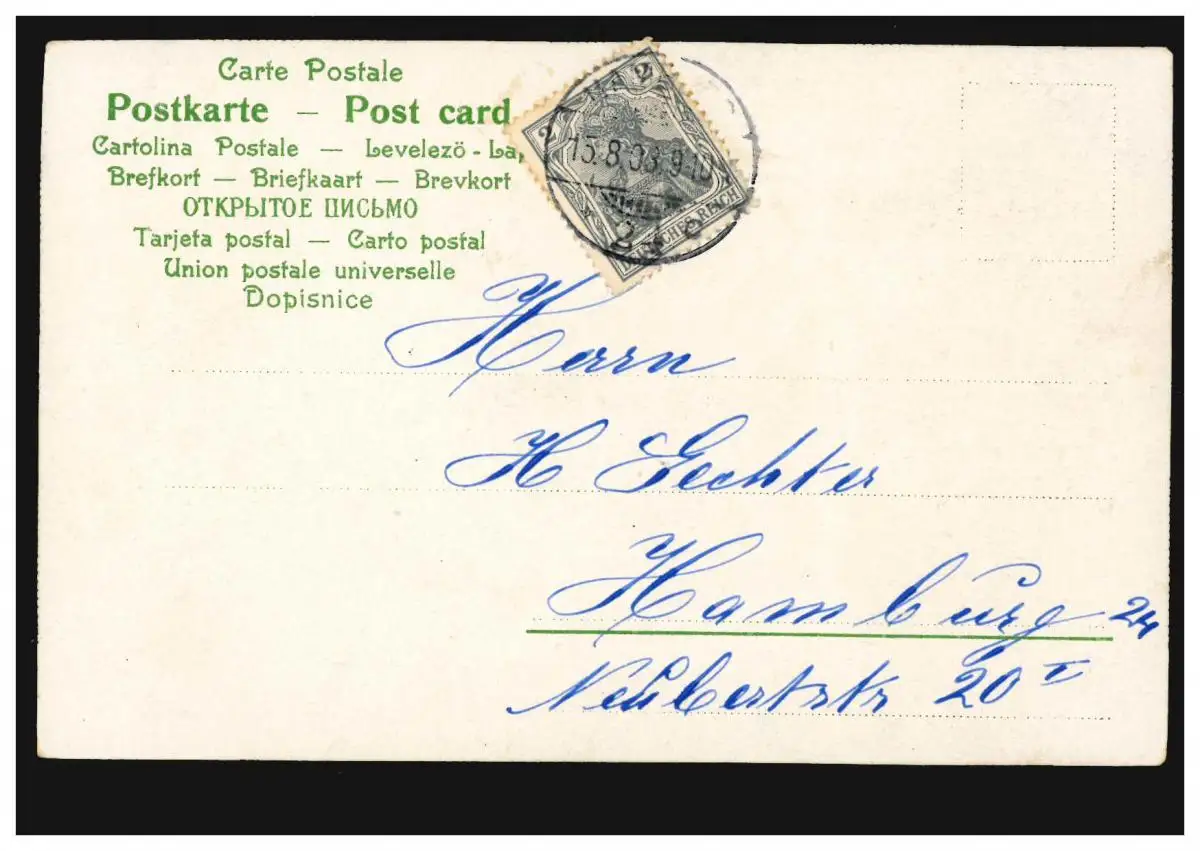 Carte Postale
Postkarte — Post card
Cartolina Postale — Levelezö - La
Brefkort — Briefkaart — Brevkort
ОТКРЫТОЕ ПИСЬМО
Tarjeta postal — Carto postal
Union postale universelle
Dopisnice
2
2
15.8.03.9-10
2
REICH
Herrn
H Gechter
Hamburg 24
Neubertstr 20 I